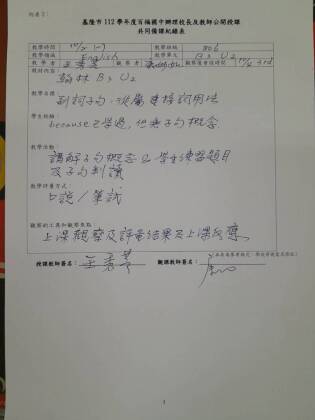 附表2:
基隆市112學年度百福國中辦理校長及教師公開授課
共同備課紀錄表
教學時間 教學班級 806
教學領域 English 教學單元 B3 U2
教學者 觀察者
教材內容:
翰林 B3 U2
教學目標:
副詞子句、從屬連接詞用法
學生經驗:
because已學過,但無子句概念
教學活動:
講解子句概念 學生練習題目
及子句判讀
教學評量方式:
口說/筆試
觀察的工具和觀察焦點:
上課觀察及評量結果及上課反應
授課教師簽名: 觀課教師簽名: